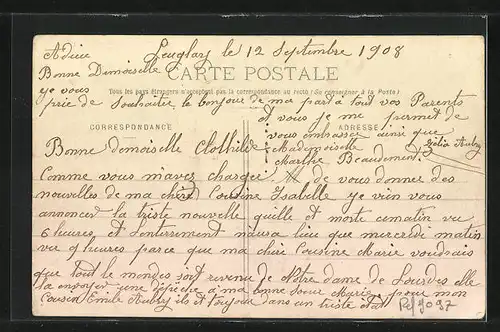 Adieu
Leuglay le 12 Septembre 1908
Bonne Demoiselle
CARTE POSTALE
Tous les pays étrangers n'acceptent pas la correspondance au recto (Se renseigner à la Poste)
je vous
prie de Souhaiter le bonjour de ma part à tout vos Parents
et vous je me permet de
vous embrasser ainsi que
CORRESPONDANCE
ADRESSE
Mademoiselle
Marthe Beaudement
Aubry
Bonne demoiselle Clothilde
Comme vous mavez charger de vous donner des
nouvelles de ma chère Cousine Isabelle je vien vous
annoncer la triste nouvelle quille et morte cematin vu
6 heures, et Lenterrement naura lieu que mercredi matin
vu 9 heures parce que ma chère Cousine Marie voudrais
que tout le mondes soit revenu de Notre dame de Lourdes elle
la envoyer une dépèche à ma bonne Soeur Marie pour mon
Cousin Emile Aubry ils et toujour dans un triste état